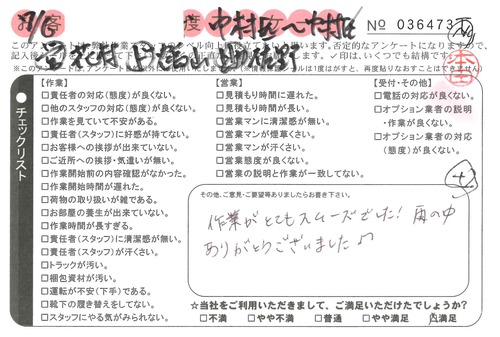 中村区へ中村区
No 036473
このアン
否定的なアンケートになりますので、
記入後
✓印は、いくつでも結構です。
【作業】
□責任者の対応(態度)が良くない。
□他のスタッフの対応(態度)が良くない。
□作業を見ていて不安がある。
□責任者(スタッフ)に好感が持てない。
□お客様への挨拶が出来ていない。
□ご近所への挨拶・気遣いが無い。
□作業開始前の内容確認がなかった。
□作業開始時間が遅れた。
□荷物の取り扱いが雑である。
□お部屋の養生が出来ていない。
□作業時間が長すぎる。
□責任者(スタッフ)に清潔感が無い。
□責任者(スタッフ)が汗くさい。
□トラックが汚い。
□梱包資材が汚い。
□運転が不安(下手)である。
□靴下の履き替えをしてない。
□スタッフにやる気がみられない。
チェックリスト
【営業】
□見積もり時間に遅れた。
□見積もり時間が長い。
□営業マンに清潔感が無い。
□営業マンが煙草くさい。
□営業マンが汗くさい。
□営業態度が良くない。
□営業の説明と作業が一致してない。
【受付・その他】
□電話の対応が良くない。
□オプション業者の説明
・作業が良くない。
□オプション業者の対応
(態度)が良くない。
その他、ご意見・ご要望等ありましたらお書き下さい。
作業がとてもスムーズでした!雨の中
ありがとうございました♪
☆当社をご利用いただきまして、ご満足いただけたでしょうか?
□不満 □やや不満 □普通 □やや満足 □満足